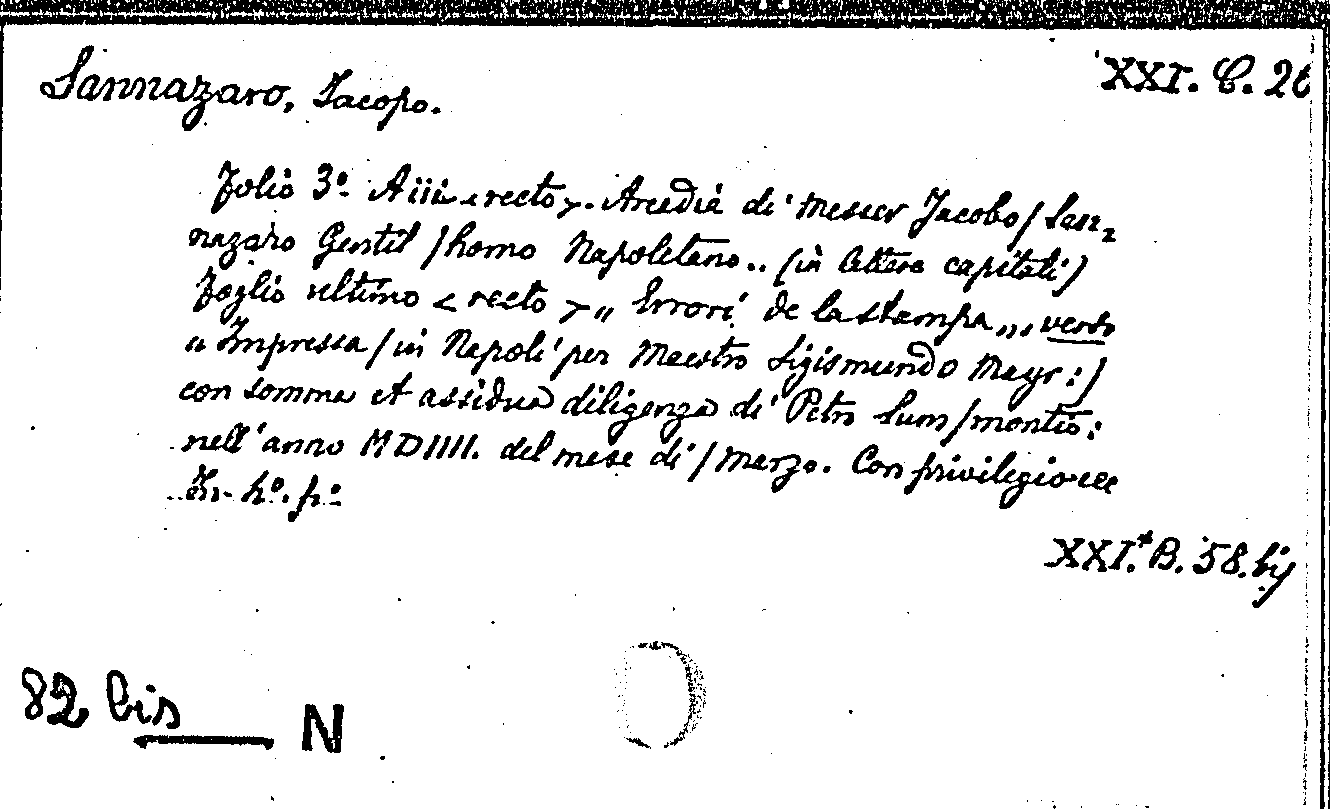 Sannazaro, Jacopo.
XXI. C. 26
Folio 3º Aiii <recto>. Arcadia di Messer Jacobo/San-
nazaro Gentil/homo Napoletano.. (in lettere capitali)
Foglio ultimo <recto> „ Errori de la stampa „, verso
„ Impressa/in Napoli per Maestro Sigismundo Mayr:/
con somma et assidua diligenza di Petro Sum/montio:
nell'anno MDIIII. del mese di/Marzo. Con privilegio
In hº. pº
XXI.* B. 58. bis
82 bis
N